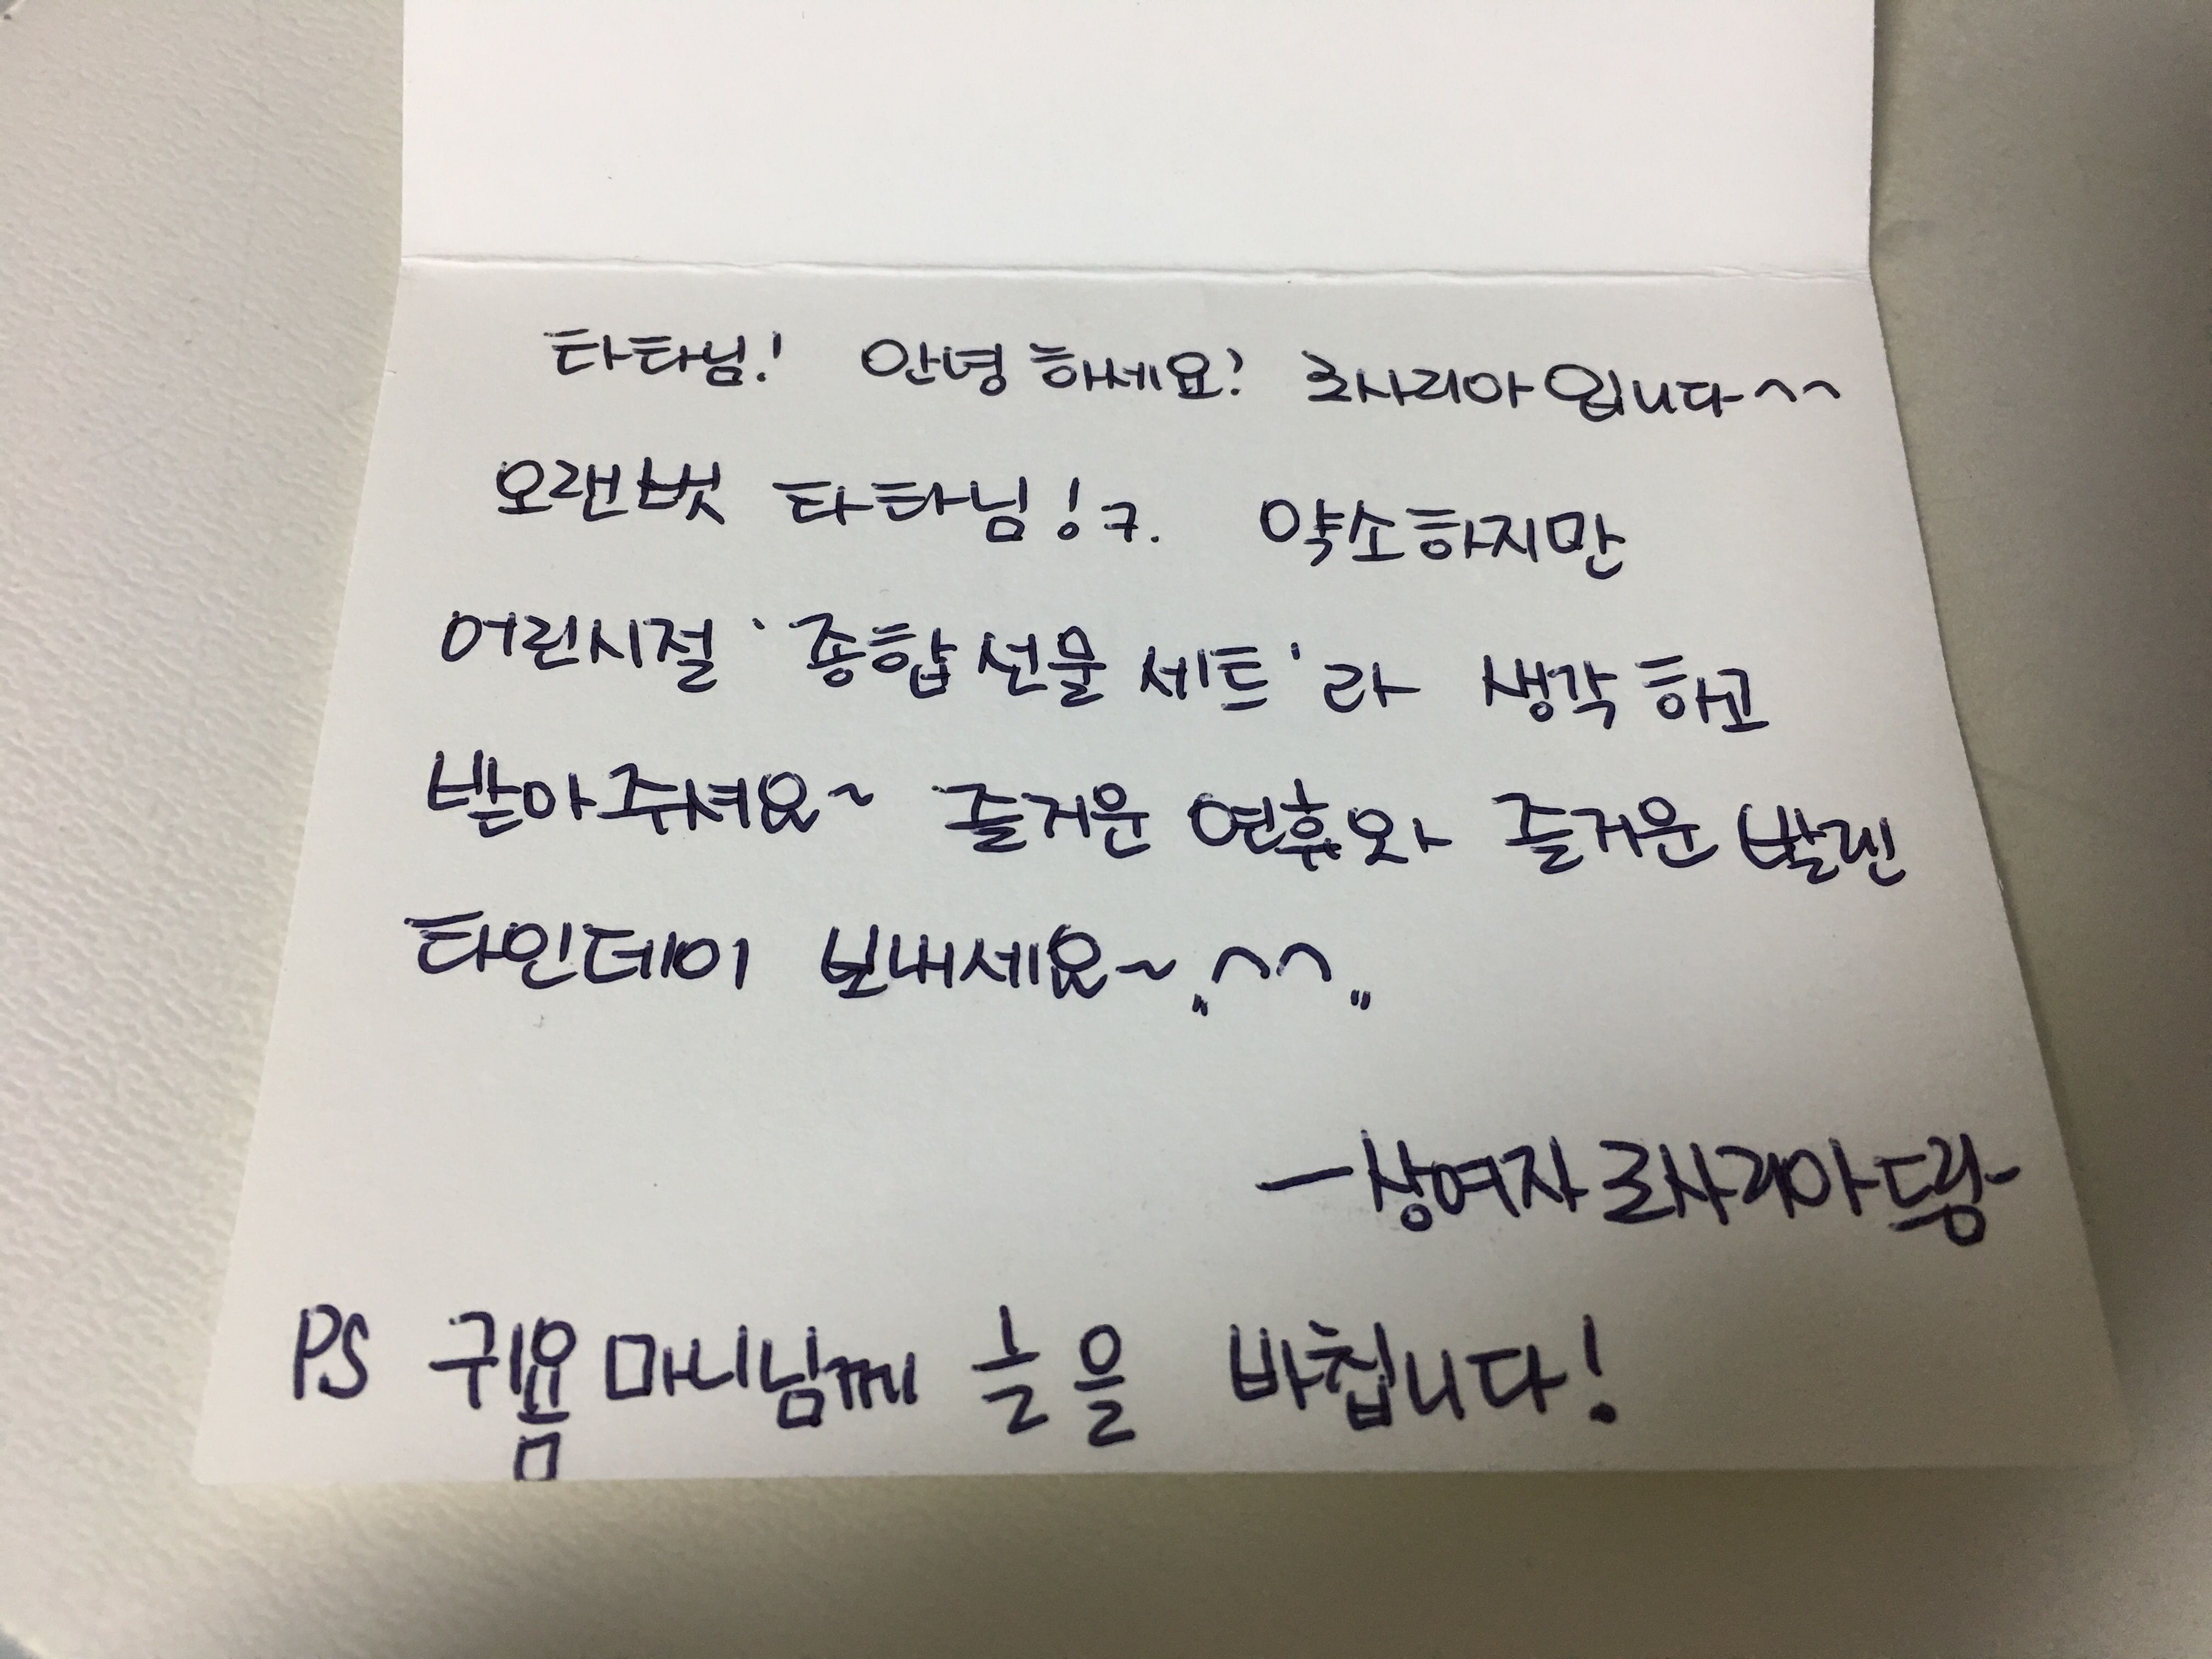 타타님! 안녕하세요? 로사리아입니다^^
오랜벗 타타님!ㅋ. 약소하지만
어린시절 '종합선물세트'라 생각하고
받아주셔요~ 즐거운 연휴와 즐거운 발렌
타인데이 보내세요~〃^^〃
-상여자 로사리아드림-
PS 귀욤마니님께 글을 바칩니다!